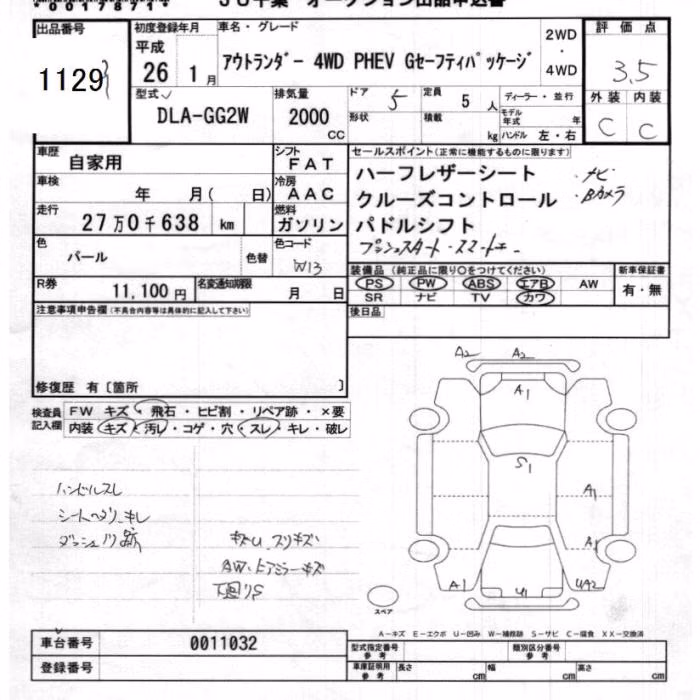 出品番号
1129
初度登録年月
平成
26 1月
車名・グレード
アウトランダー 4WD PHEV Gセーフティパッケージ
2WD
・
4WD
評価点
3.5
外装 内装
C C
型式
DLA-GG2W
排気量
2000
CC
ドア 5
定員 5 人
形状
積載 kg
ディーラー・並行
モデル年式 年
ハンドル 左・右
車歴
自家用
シフト
FAT
車検
年 月( 日)
冷房
AAC
走行
27万0千638 km
燃料
ガソリン
色
パール
色替
色コード
W13
R券
11,100円
名変通知期限
月 日
セールスポイント(正常に機能するものに限ります)
ハーフレザーシート
クルーズコントロール
パドルシフト
・ナビ
・Bカメラ
プッシュスタート・スマートキー
装備品(純正品に限り○をつけてください)
PS PW ABS エアB AW
SR ナビ TV カワ
新車保証書
有・無
後日品
注意事項申告欄(不具合内容等は具体的に記入して下さい)
修復歴 有〔箇所 〕
検査員
記入欄
FW キズ・飛石・ヒビ割・リペア跡・×要
内装 キズ・汚レ・コゲ・穴・スレ・キレ・破レ
ハンドルスレ
シートヘタリ、キレ
ダッシュノリ跡
キズU、スリキズ
AW・ドアミラーキズ
下廻りS
A2 A2
A1
S1
A1
A1
A1 U1 UA2
スペア
A-キズ E-エクボ U-凹み W-補修跡 S-サビ C-腐食 XX-交換済
車台番号
0011032
登録番号
型式指定番号
参考
類別区分番号
参考
車庫証明用
参考
長さ cm
幅 cm
高さ cm